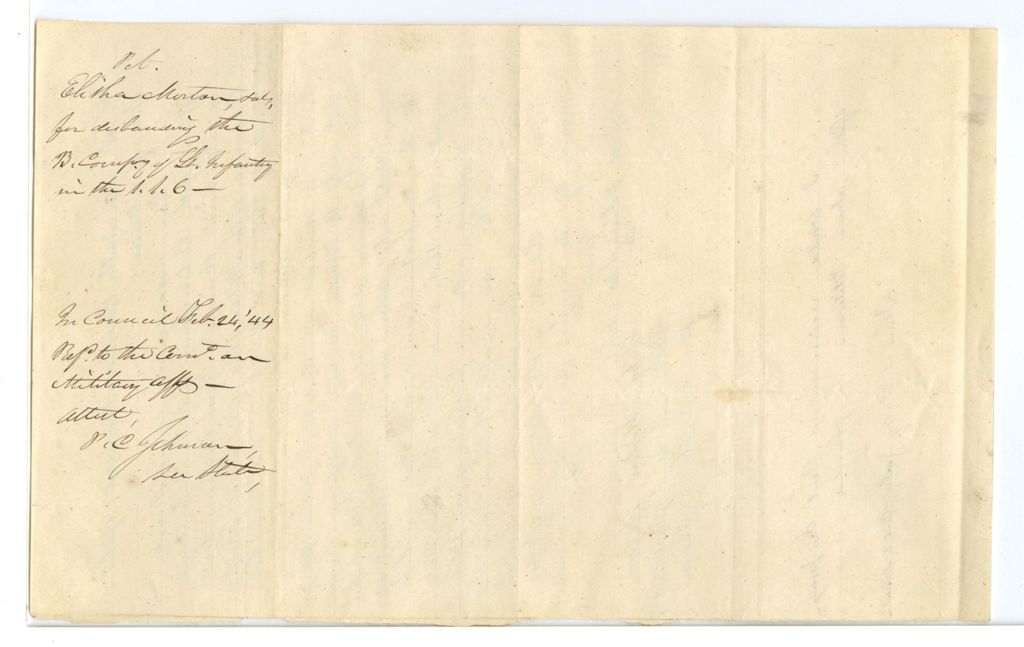 Pet.
Elisha Morton, & als,
for disbanding the
B. Compy of Lt. Infantry
in the 1. 1. 6 —
In Council Feb. 24, '44
Refd. to the Comt. on
Military Affs —
Attest,
P. C. Johnson,
Sec State,